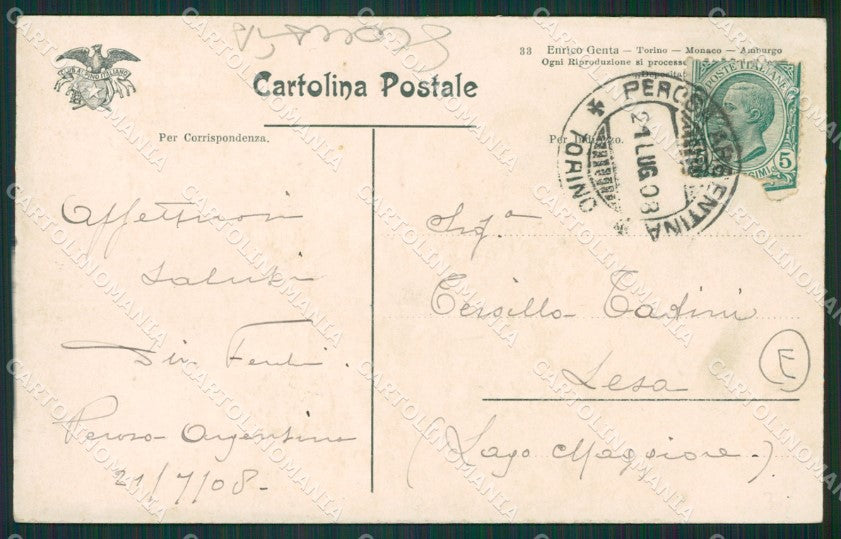 33 Enrico Genta — Torino — Monaco — Amburgo
Ogni Riproduzione si processe
Cartolina Postale
Per Corrispondenza.
Per Indirizzo.
POSTE ITALIANE
5
PEROSA ARGENTINA
21 LUG 08
TORINO
Affettuosi
saluti
Perosa-Argentina
21/7/08-
Sig.a
Tersilla Tadini
Lesa
(Lago Maggiore.)
E
CARTOLINOMANIA